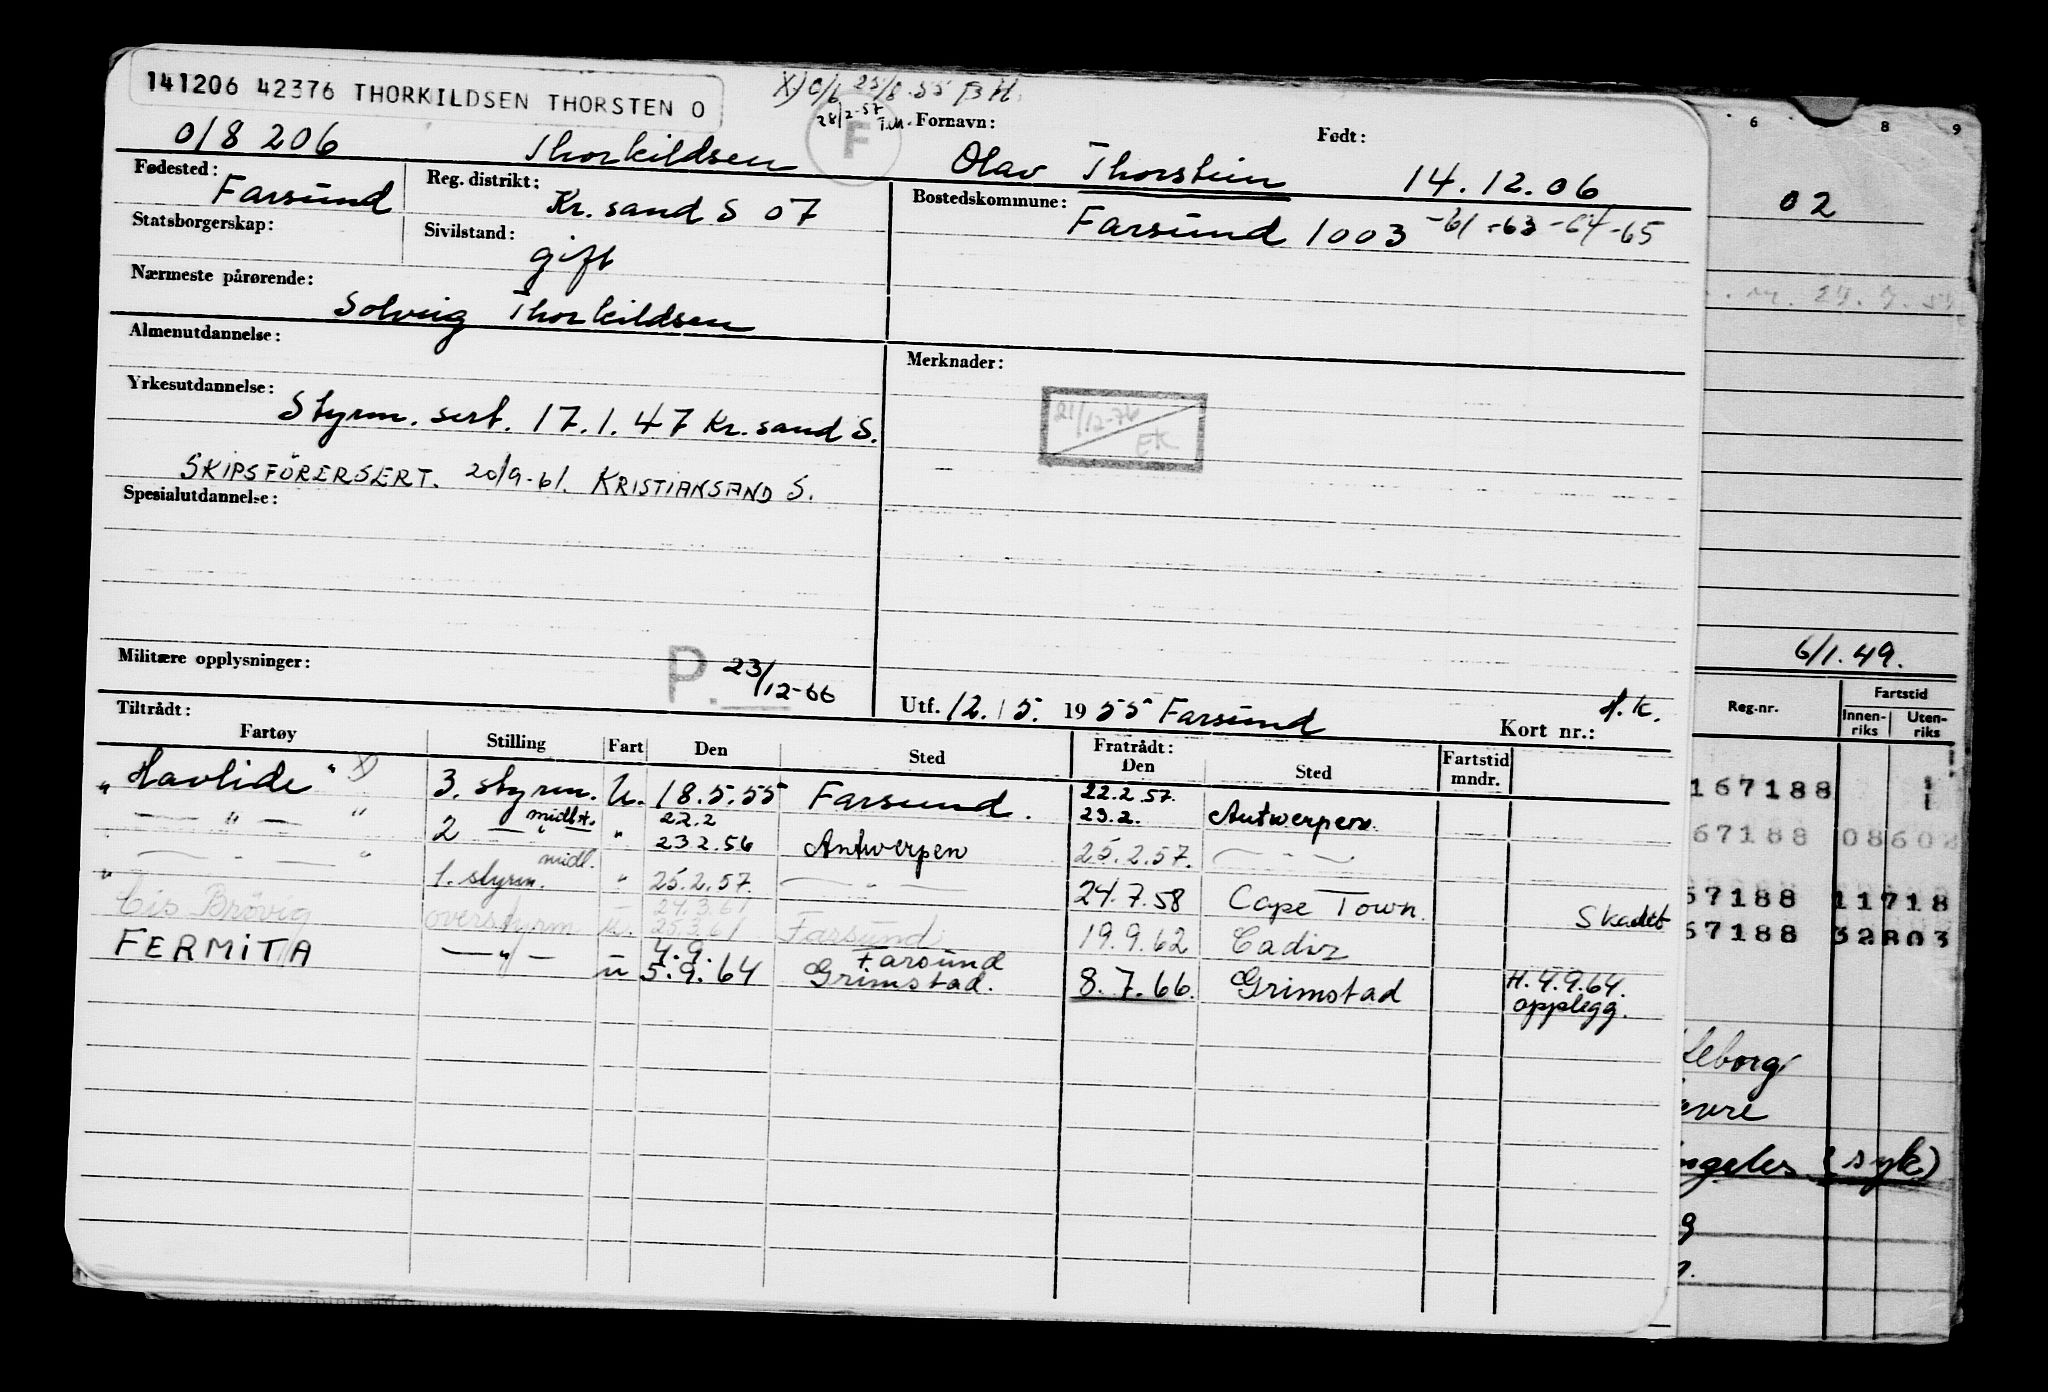 141206 42376 THORKILDSEN THORSTEN O
X) 25/8-55 BH.
28/2-57 T.M.
F
018 206 Thorkildsen
Fornavn: Olav Thorstein
Født: 14.12.06
Fødested: Farsund
Reg. distrikt: Kr. sand S 07
Bostedskommune: Farsund 1003 -61 -63 -64 -65
Statsborgerskap:
Sivilstand: gift
Nærmeste pårørende: Solveig Thorkildsen
Almenutdannelse:
Merknader:
21/12-76 EK
Yrkesutdannelse: Styrm. sert. 17.1.47 Kr. sand S.
SKIPSFÖRERSERT. 20/9-61. KRISTIANSAND S.
Spesialutdannelse:
Militære opplysninger:
P. 23/12-66
Utf. 12.5. 1955 Farsund
Kort nr.: A.K.
Tiltrådt:
Fratrådt:
Fartøy Stilling Fart Den Sted Den Sted Fartstid mndr.
"Havlide" X) 3. styrm. U. 18.5.55 Farsund. 22.2.57. 23.2. Antwerpen.
— " — " 2 — " — midlt. " 22.2 23.2.56 Antwerpen 25.2.57. — " —
" — " — " 1. styrm. midl. " 25.2.57. — " — 24.7.58 Cape Town. Skadet
Cis Brövig overstyrm U. 24.3.61 25.3.61 Farsund 19.9.62 Cadiz
FERMITA — " — U 4.9. 5.9.64 Farsund Grimstad. 8.7.66. Grimstad H. 4.9.64. opplegg.
6 8 9
02
6/1.49.
Reg.nr. Fartstid
Innen-riks Uten-riks
167188
67188 08602
67188 11718
67188 32803
(syk)